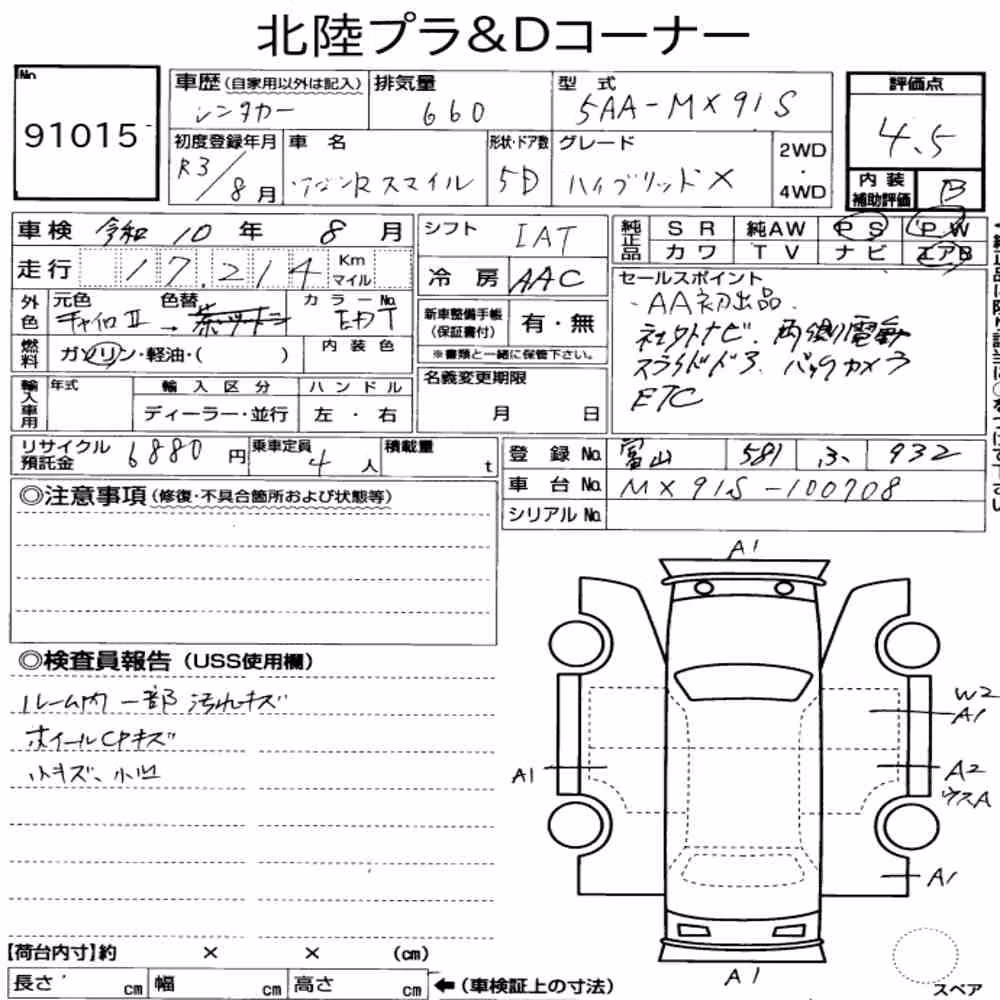 北陸プラ&Dコーナー
No.
91015
車歴(自家用以外は記入)
レンタカー
排気量
660
型 式
5AA-MX91S
評価点
4.5
初度登録年月
R3/8月
車 名
ワゴンRスマイル
形状・ドア数
5D
グレード
ハイブリッドX
2WD
・
4WD
内 装
補助評価
B
車検 令和 10 年 8 月
シフト IAT
純正品
SR 純AW PS PW
カワ TV ナビ エアB
走行 17,214 Km マイル
冷房 AAC
セールスポイント
・AA初出品.
社外ナビ.両側電動
スライドドア.バックカメラ
ETC
外色
元色 色替 カラーNo.
チャイロII →
新車整備手帳
(保証書付)
有・無
※書類と一緒に保管下さい。
燃料
ガソリン・軽油・( )
内装色
名義変更期限
月 日
輸入車用
年式
輸入区分 ハンドル
ディーラー・並行 左・右
リサイクル
預託金
6880 円
乗車定員 4 人
積載量 t
登録No. 富山 581 932
車台No. MX91S-100708
シリアルNo.
◎注意事項(修復・不具合箇所および状態等)
◎検査員報告(USS使用欄)
ルーム内一部汚れキズ
ホイールCPキズ
小キズ、小凹
A1
W2
A1
A1
A2
ウスA
A1
A1
【荷台内寸】約 × × (cm)
長さ cm 幅 cm 高さ cm ←(車検証上の寸法)
スペア